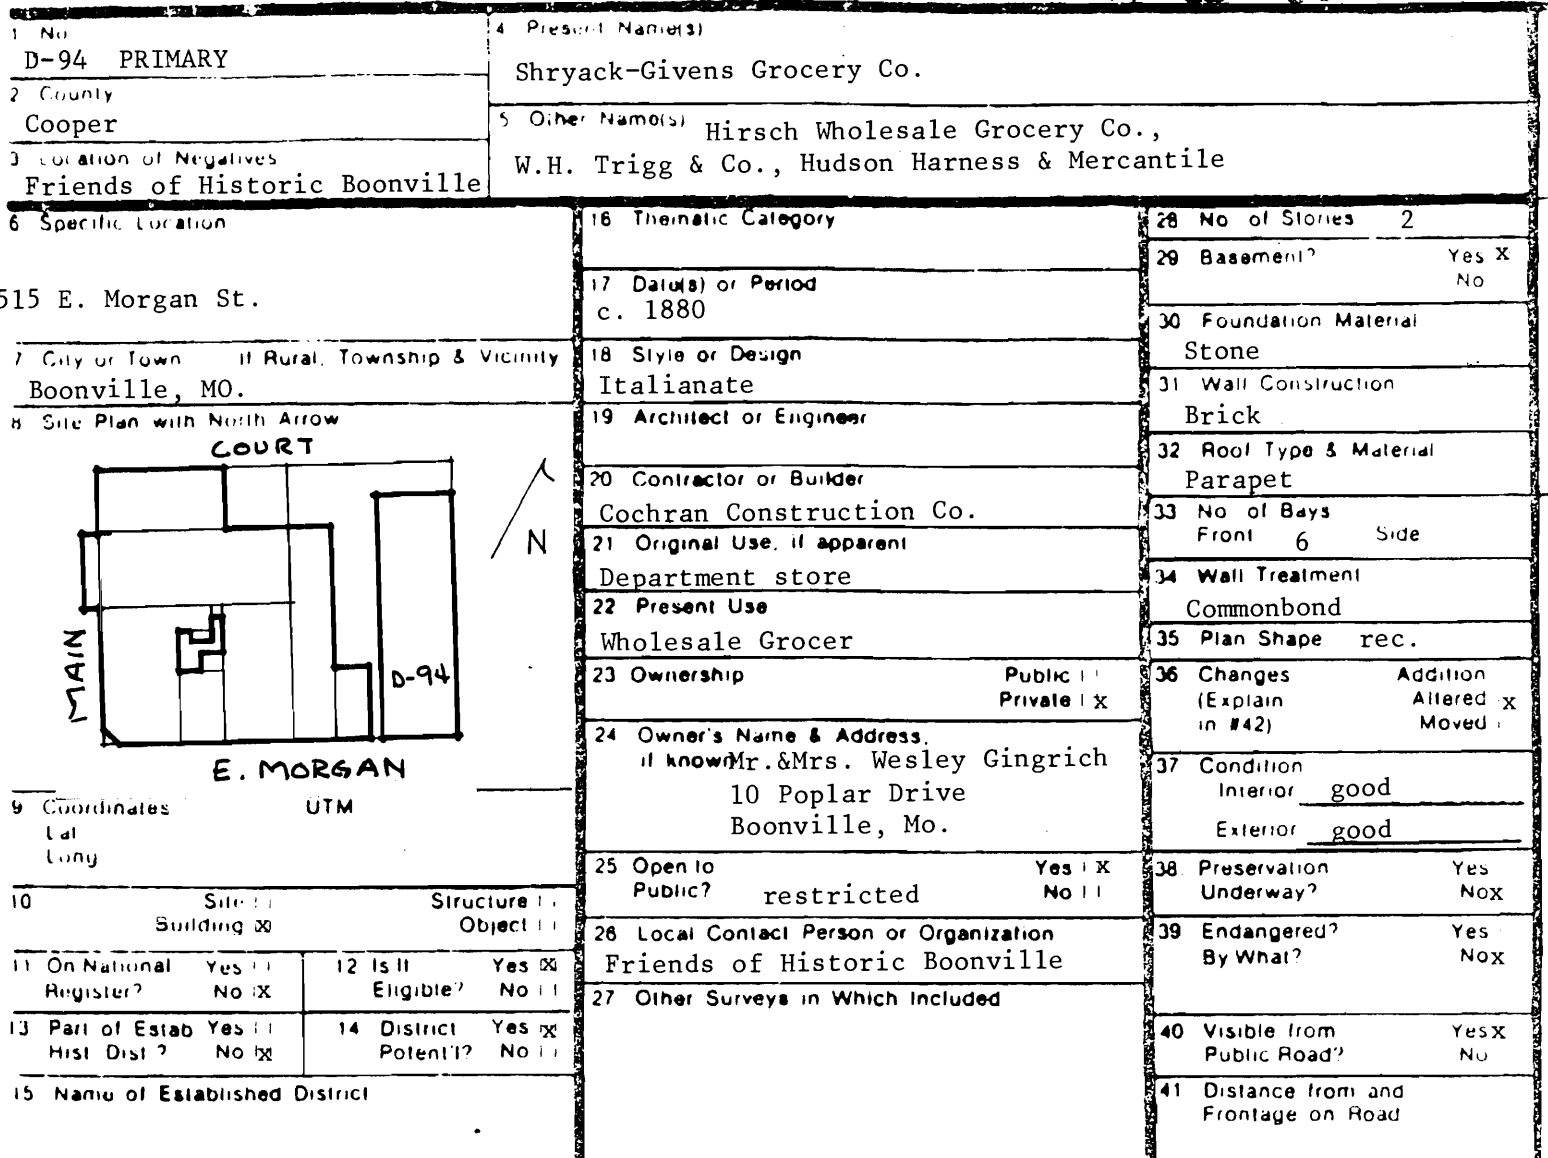 1 No
D-94 PRIMARY
2 County
Cooper
3 Location of Negatives
Friends of Historic Boonville
4 Present Name(s)
Shryack-Givens Grocery Co.
5 Other Name(s) Hirsch Wholesale Grocery Co.,
W.H. Trigg & Co., Hudson Harness & Mercantile
6 Specific Location
515 E. Morgan St.
7 City or Town If Rural, Township & Vicinity
Boonville, MO.
8 Site Plan with North Arrow
COURT
N
MAIN
D-94
E. MORGAN
9 Coordinates UTM
Lat
Long
10 Site Structure
Building X Object
11 On National Yes
Register? No X
12 Is It Yes X
Eligible? No
13 Part of Estab Yes
Hist Dist ? No X
14 District Yes X
Potent'l? No
15 Name of Established District
16 Thematic Category
17 Date(s) or Period
c. 1880
18 Style or Design
Italianate
19 Architect or Engineer
20 Contractor or Builder
Cochran Construction Co.
21 Original Use, if apparent
Department store
22 Present Use
Wholesale Grocer
23 Ownership Public
Private X
24 Owner's Name & Address,
if known Mr.&Mrs. Wesley Gingrich
10 Poplar Drive
Boonville, Mo.
25 Open to Yes X
Public? restricted No
26 Local Contact Person or Organization
Friends of Historic Boonville
27 Other Surveys in Which Included
28 No of Stories 2
29 Basement? Yes X
No
30 Foundation Material
Stone
31 Wall Construction
Brick
32 Roof Type & Material
Parapet
33 No of Bays
Front 6 Side
34 Wall Treatment
Commonbond
35 Plan Shape rec.
36 Changes Addition
(Explain Altered x
in #42) Moved
37 Condition
Interior good
Exterior good
38 Preservation Yes
Underway? Nox
39 Endangered? Yes
By What? Nox
40 Visible from Yesx
Public Road? No
41 Distance from and
Frontage on Road